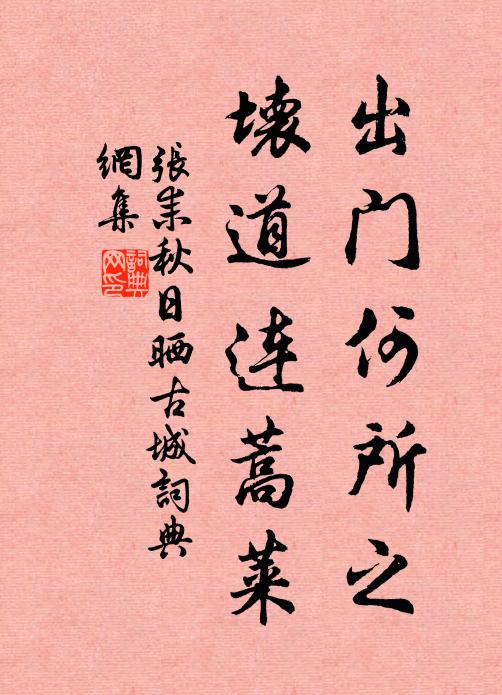 出门何所之
壞道连蒿莱
張耒秋日晒古城詞典
網集
詞典
网印